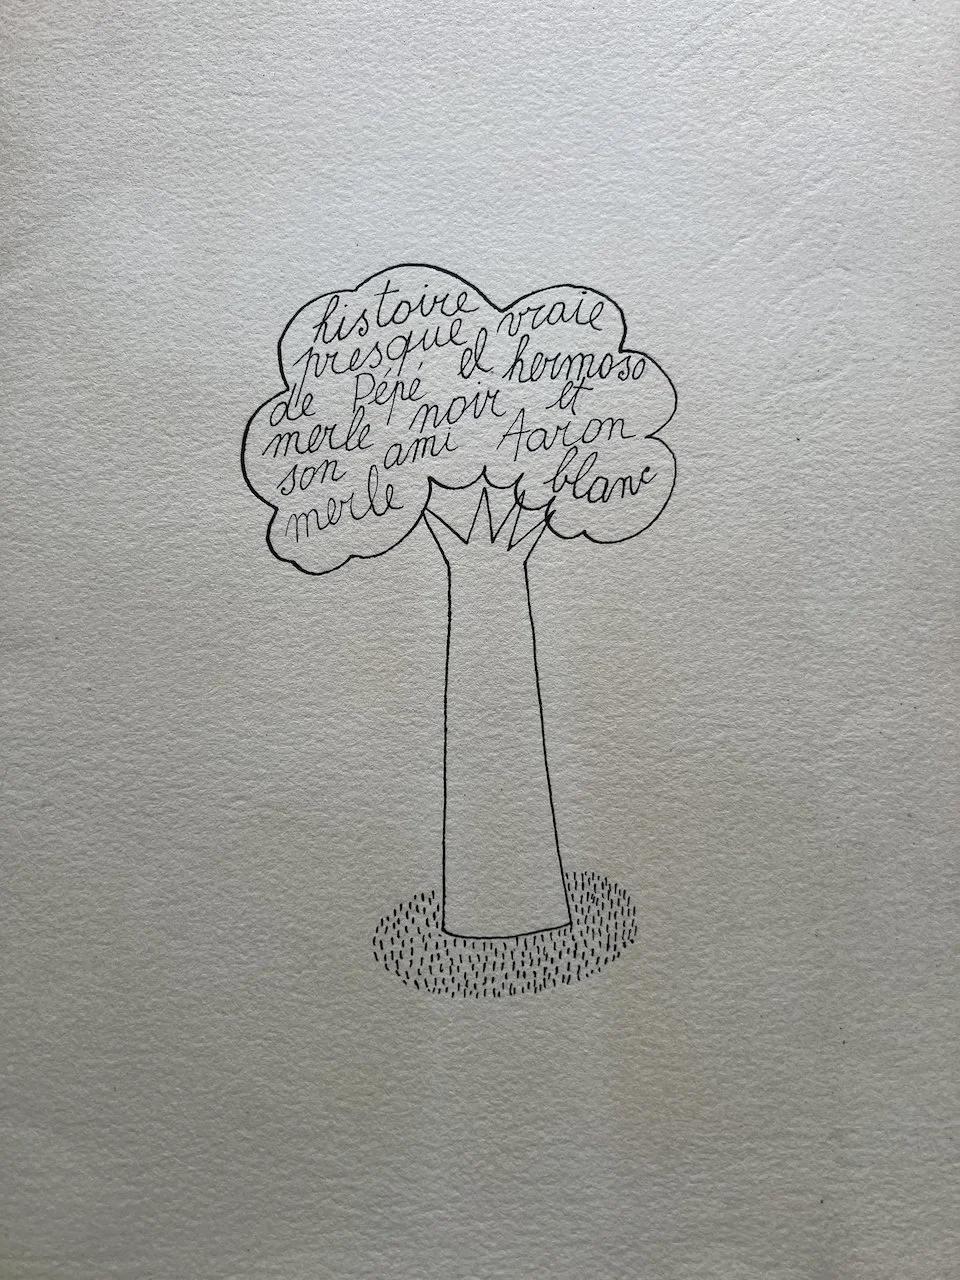 histoire vraie
presque el hermoso
de Pépé et
merle noir Aaron
son ami blanc
merle